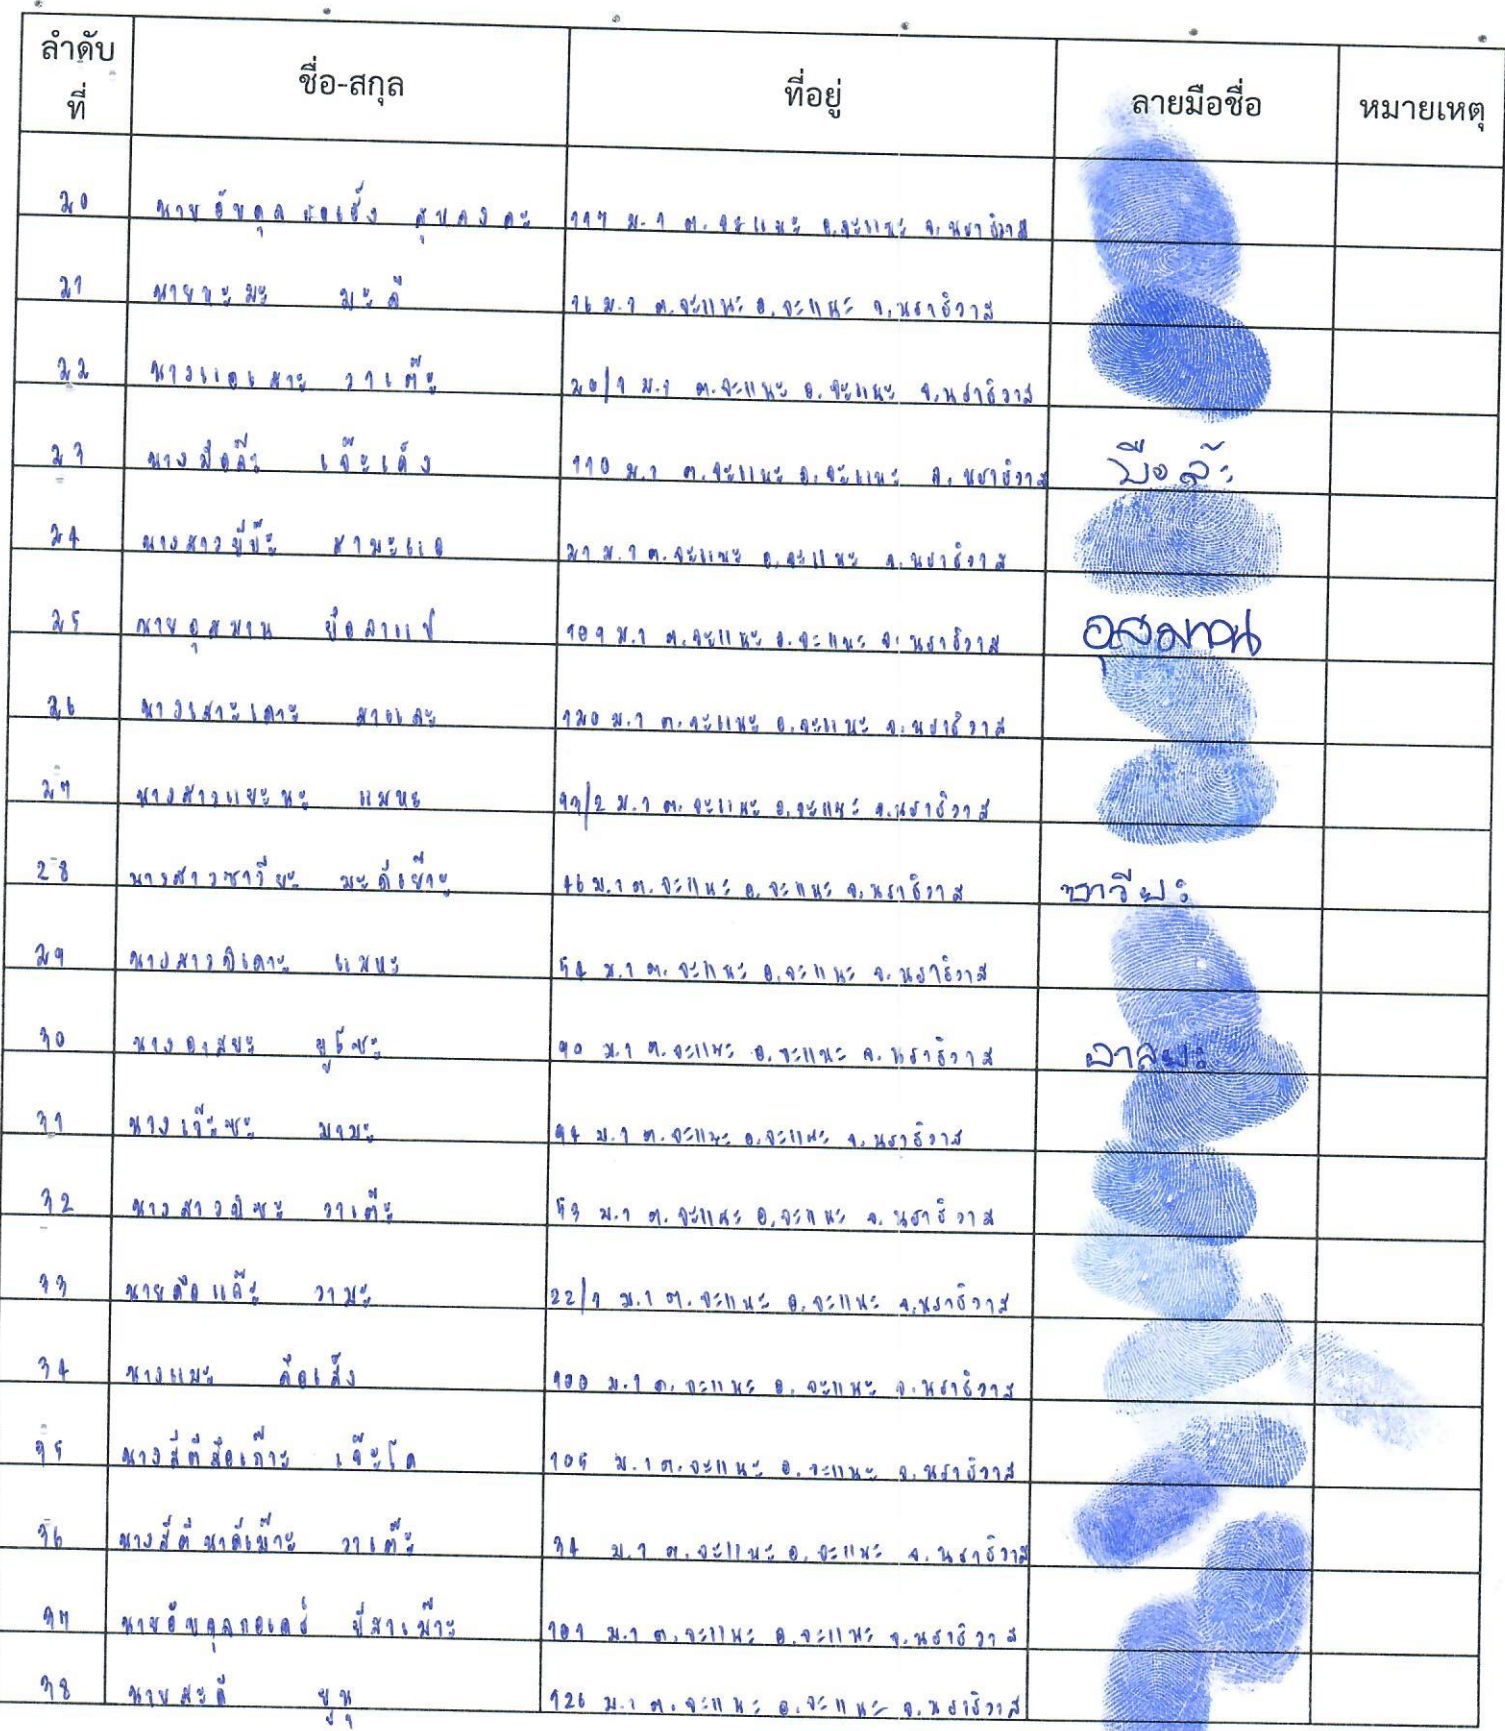 ลำดับที่ ชื่อ-สกุล ที่อยู่ ลายมือชื่อ หมายเหตุ
20 นายอับดุล 117 ม.1 ต.จะแนะ อ.จะแนะ จ.นราธิวาส
21 นาย มะดี 16 ม.1 ต.จะแนะ อ.จะแนะ จ.นราธิวาส
22 นางแอเสาะ วาเต๊ะ 20/1 ม.1 ต.จะแนะ อ.จะแนะ จ.นราธิวาส
23 นางมือล๊ะ เจ๊ะเด็ง 110 ม.1 ต.จะแนะ อ.จะแนะ จ.นราธิวาส มือล๊ะ
24 นางสาว สามะแอ 21 ม.1 ต.จะแนะ อ.จะแนะ จ.นราธิวาส
25 นายอุสมาน ม.1 ต.จะแนะ อ.จะแนะ จ.นราธิวาส อุสมาน
26 นางเสาะเดาะ สาและ 120 ม.1 ต.จะแนะ อ.จะแนะ จ.นราธิวาส
27 นางสาวแยะนะ แมหะ 93/2 ม.1 ต.จะแนะ อ.จะแนะ จ.นราธิวาส
28 นางสาวซาวียะ มะดีเย๊าะ 46 ม.1 ต.จะแนะ อ.จะแนะ จ.นราธิวาส ซาวียะ
29 นางสาว แมหะ 54 ม.1 ต.จะแนะ อ.จะแนะ จ.นราธิวาส
30 นางอาสยะ ยูโซะ 90 ม.1 ต.จะแนะ อ.จะแนะ จ.นราธิวาส อาสยะ
31 นางเจ๊ะซะ มามะ 94 ม.1 ต.จะแนะ อ.จะแนะ จ.นราธิวาส
32 นางสาว วาเต๊ะ 53 ม.1 ต.จะแนะ อ.จะแนะ จ.นราธิวาส
33 นาย วามะ 22/1 ม.1 ต.จะแนะ อ.จะแนะ จ.นราธิวาส
34 นางแมะ ลือเส็ง 100 ม.1 ต.จะแนะ อ.จะแนะ จ.นราธิวาส
35 นางสีตีสือเก๊าะ เจ๊ะโด 105 ม.1 ต.จะแนะ อ.จะแนะ จ.นราธิวาส
36 นางสีตีนาดีเม๊าะ วาเต๊ะ 34 ม.1 ต.จะแนะ อ.จะแนะ จ.นราธิวาส
37 นายอับดุลกอเดร์ ยีสาเม๊าะ 101 ม.1 ต.จะแนะ อ.จะแนะ จ.นราธิวาส
38 นายสะดี ยูนุ 126 ม.1 ต.จะแนะ อ.จะแนะ จ.นราธิวาส